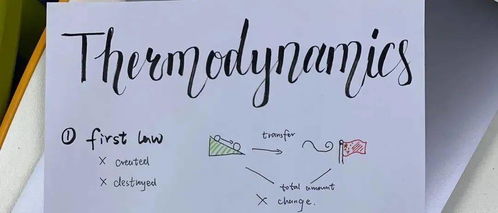 Thermodynamics
① first law
× created
× destroyed
transfer
total amount
× change.